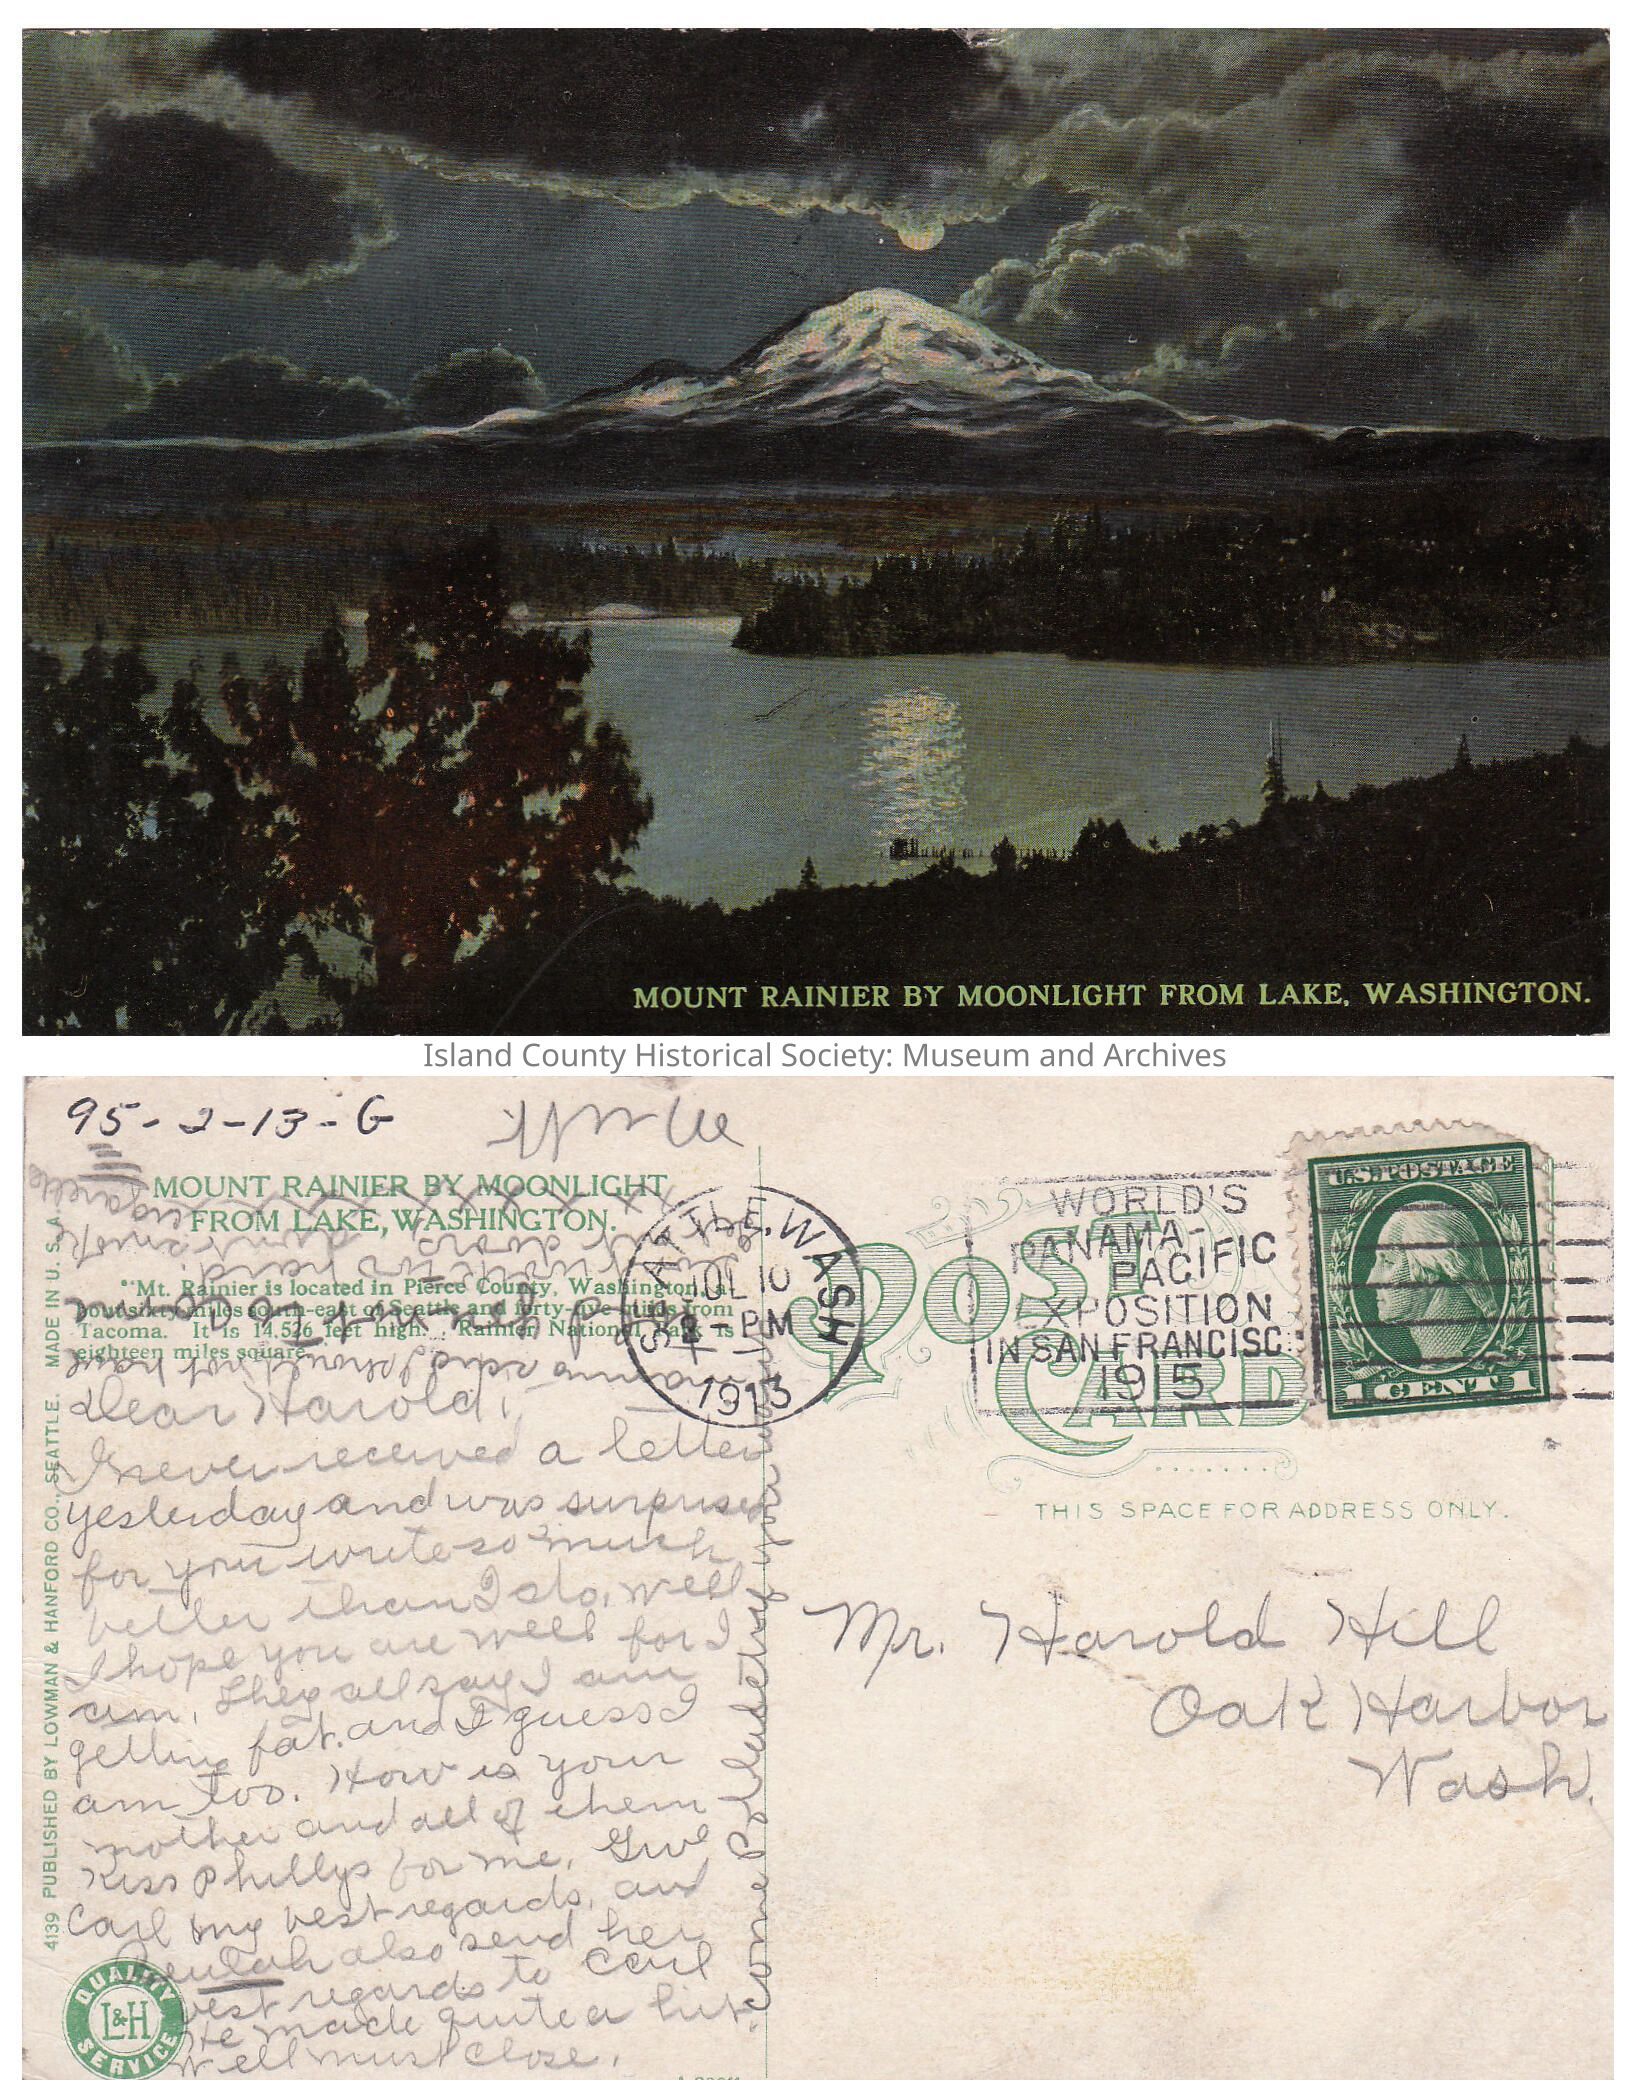 MOUNT RAINIER BY MOONLIGHT FROM LAKE, WASHINGTON.
Island County Historical Society: Museum and Archives
95-2-13-G
MOUNT RAINIER BY MOONLIGHT
FROM LAKE, WASHINGTON.
Mt. Rainier is located in Pierce County, Washington, a
bout sixty miles south-east of Seattle and forty-five miles from
Tacoma. It is 14.526 feet high. Rainier National Park is
eighteen miles square.
Dear Harold,
I never received a letter
yesterday and was surprised
for you write so much
better than I do. Well
I hope you are well for I
am. They all say I am
getting fat. and I guess I
am too. How is your
mother and all of them
Kiss Phillys for me. Give
Carl my best regards, and
Beulah also send her
best regards to Carl
He made quite a hit.
Well must close.
4139 PUBLISHED BY LOWMAN & HANFORD CO., SEATTLE. MADE IN U. S. A.
QUALITY
L&H
SERVICE
SEATTLE, WASH
8-PM
1913
WORLD'S
PANAMA-
PACIFIC
EXPOSITION
IN SAN FRANCISC
1915
U.S. POSTAGE
1 CENT 1
POST
CARD
THIS SPACE FOR ADDRESS ONLY.
Mr. Harold Hill
Oak Harbor
Wash.